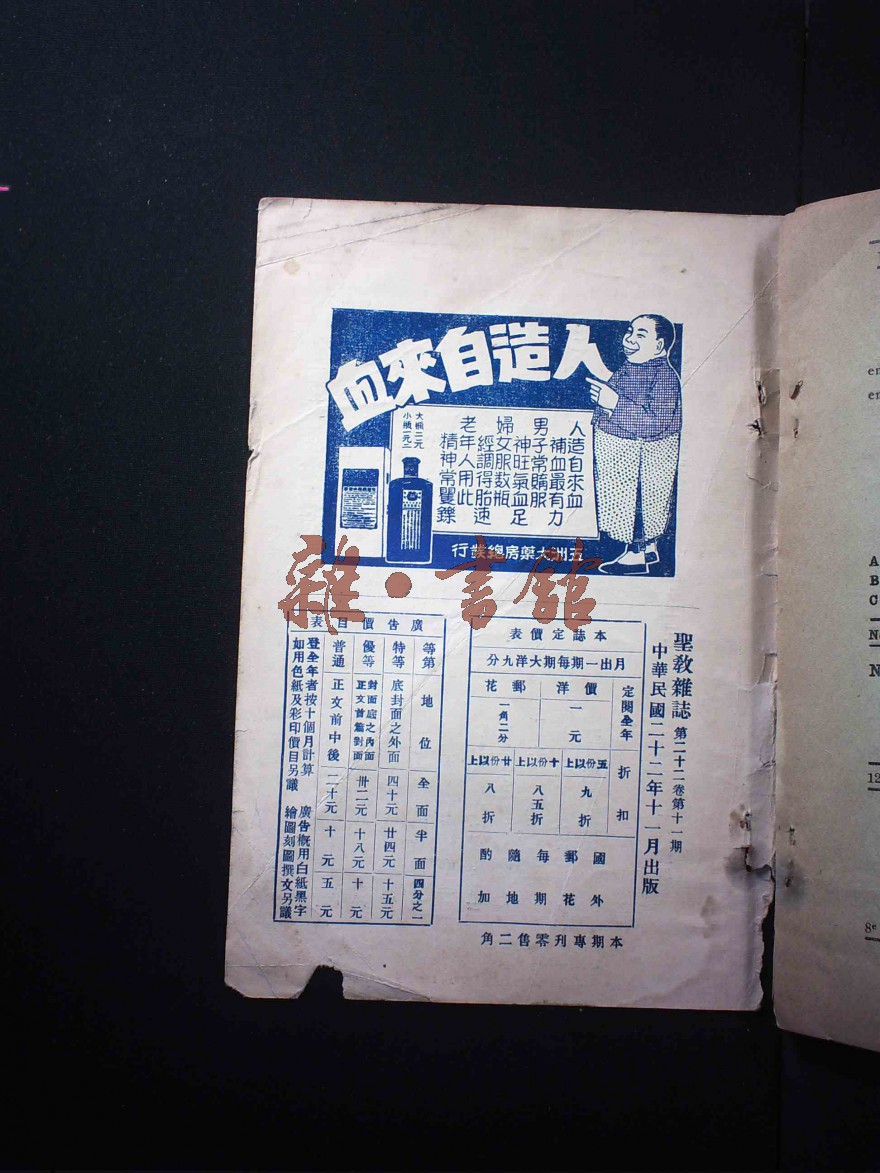 人造自來血
人造自來血
補血最有力
男子常購服
神旺氣血足
婦女服数瓶
經調得胎速
老年人用此
精神常矍鑠
大瓶二元
小瓶一元二
五洲大藥房總發行
雜·書館
聖教雜誌 第二十二卷第十一期
中華民國二十二年十一月出版
本誌定價表
月出一期每期大洋九分
定閱全年
價洋 一元
郵花 一角二分
折扣
五份以上 九折
十份以上 八五折
廿份以上 八折
國外郵花每期隨地酌加
本期專刊零售二角
廣告價目表
等第 地位 全面 半面 四分之一
特等 底封面之外面 四十元 廿四元 十五元
優等 封面底之內面 正文首篇對面 卅二元 十八元 十元
普通 正文前中後 二十元 十元 五元
登全年者按十個月計算 廣告概用白紙黑字
如用色紙及彩印價目另議 繪圖刻圖撰文另議
en
en
A
B
C
N
12
8e